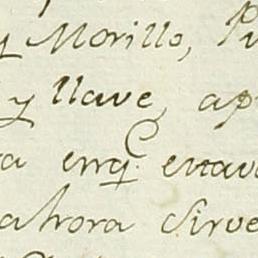 y Morillo, P
y llave, ap
a enq.e estava
ahora sirve